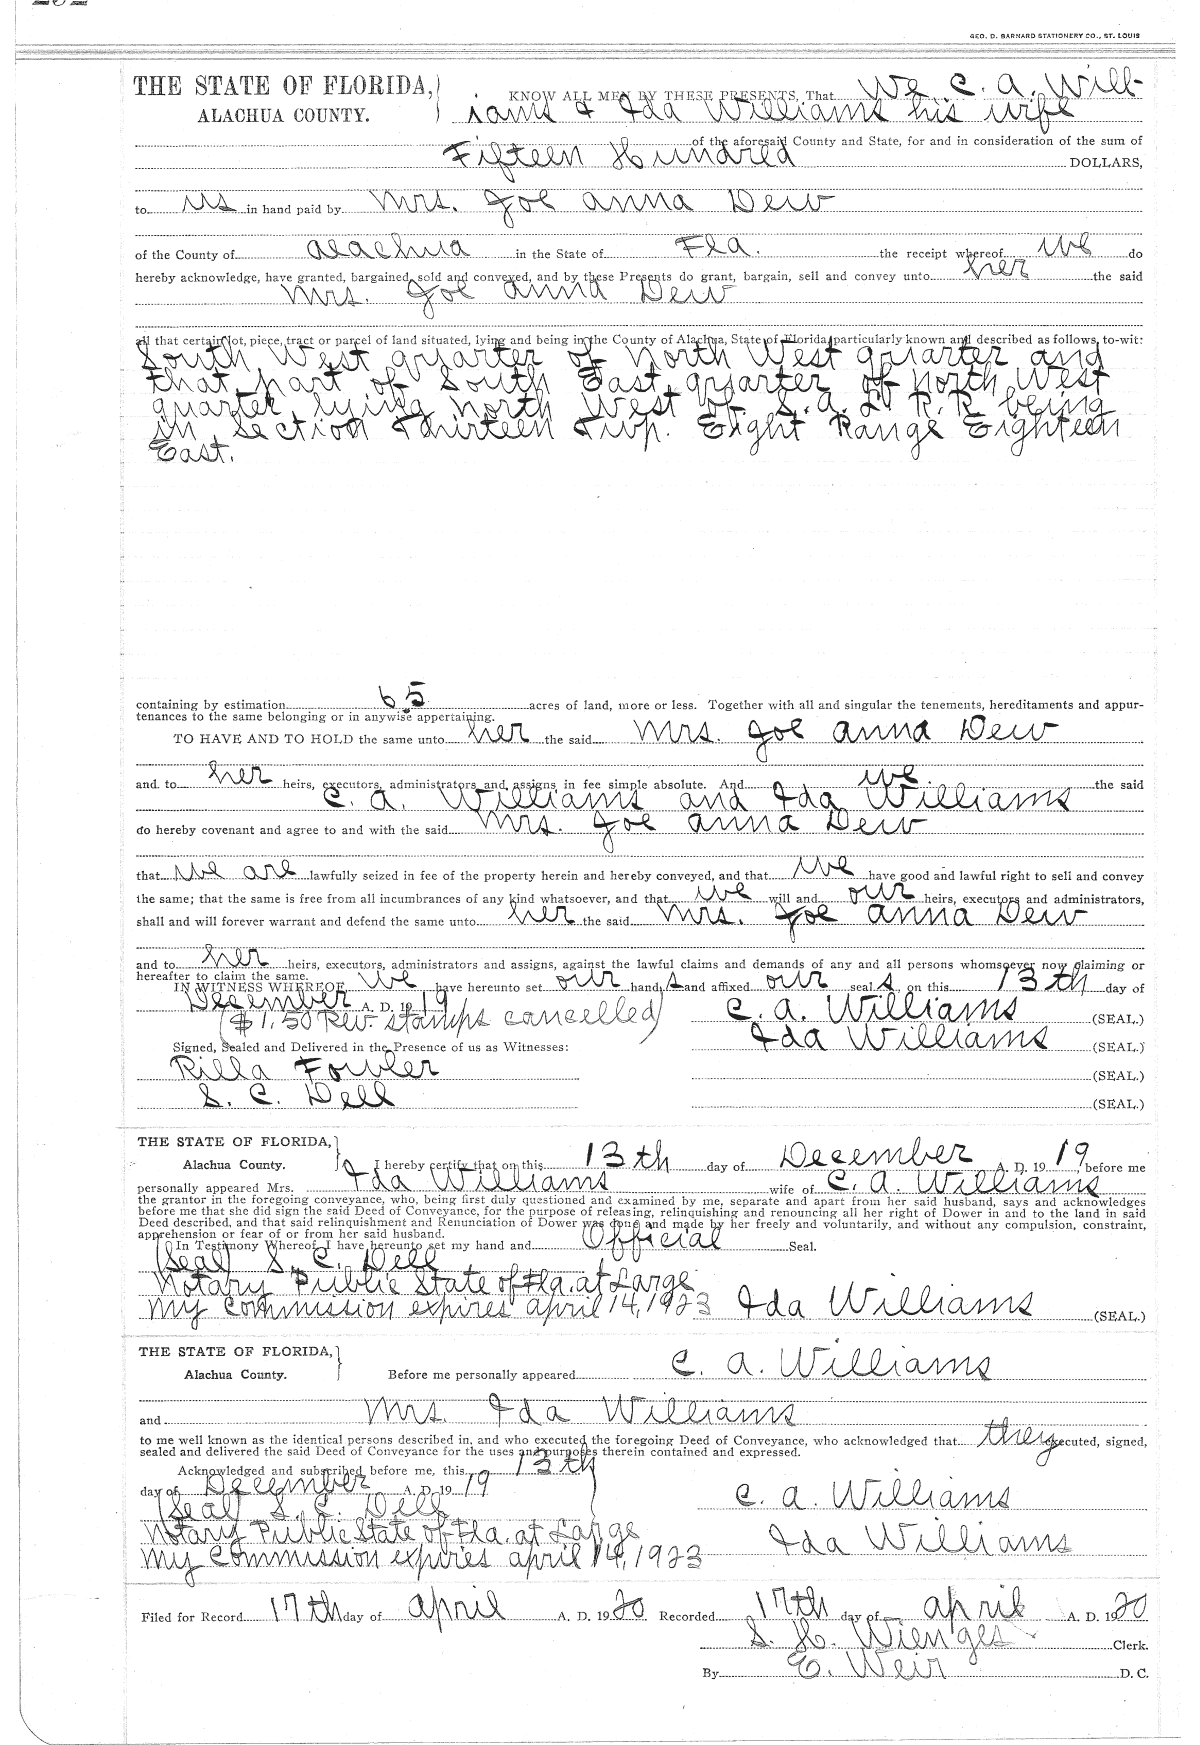 GEO. D. BARNARD STATIONERY CO., ST. LOUIS
THE STATE OF FLORIDA,
ALACHUA COUNTY.
KNOW ALL MEN BY THESE PRESENTS, That We C. A. Will-
iams & Ida Williams his wife
of the aforesaid County and State, for and in consideration of the sum of
Fifteen Hundred DOLLARS,
to us in hand paid by Mrs. Joe Anna Dew
of the County of Alachua in the State of Fla. the receipt whereof we do
hereby acknowledge, have granted, bargained, sold and conveyed, and by these Presents do grant, bargain, sell and convey unto her the said
Mrs. Joe Anna Dew
all that certain lot, piece, tract or parcel of land situated, lying and being in the County of Alachua, State of Florida, particularly known and described as follows, to-wit:
South West quarter of North West quarter and
that part of South East quarter of North West
quarter lying North West of S. A. L. R. R. being
in Section Thirteen Twp. Eight Range Eighteen
East.
containing by estimation 65 acres of land, more or less. Together with all and singular the tenements, hereditaments and appur-
tenances to the same belonging or in anywise appertaining.
TO HAVE AND TO HOLD the same unto her the said Mrs. Joe Anna Dew
and to her heirs, executors, administrators and assigns in fee simple absolute. And we the said
C. A. Williams and Ida Williams
do hereby covenant and agree to and with the said Mrs. Joe Anna Dew
that we are lawfully seized in fee of the property herein and hereby conveyed, and that we have good and lawful right to sell and convey
the same; that the same is free from all incumbrances of any kind whatsoever, and that we will and our heirs, executors and administrators,
shall and will forever warrant and defend the same unto her the said Mrs. Joe Anna Dew
and to her heirs, executors, administrators and assigns, against the lawful claims and demands of any and all persons whomsoever now claiming or
hereafter to claim the same.
IN WITNESS WHEREOF, we have hereunto set our hand s and affixed our seal s, on this 13th day of
December A. D. 19 19
($1.50 Rev. stamps cancelled)
C. A. Williams (SEAL.)
Ida Williams (SEAL.)
Signed, Sealed and Delivered in the Presence of us as Witnesses:
Rilla Fowler (SEAL.)
S. C. Dell (SEAL.)
THE STATE OF FLORIDA,
Alachua County.
I hereby certify that on this 13th day of December A. D. 19 19 before me
personally appeared Mrs. Ida Williams wife of C. A. Williams
the grantor in the foregoing conveyance, who, being first duly questioned and examined by me, separate and apart from her said husband, says and acknowledges
before me that she did sign the said Deed of Conveyance, for the purpose of releasing, relinquishing and renouncing all her right of Dower in and to the land in said
Deed described, and that said relinquishment and Renunciation of Dower was done and made by her freely and voluntarily, and without any compulsion, constraint,
apprehension or fear of or from her said husband.
In Testimony Whereof, I have hereunto set my hand and Official Seal.
(Seal) S. C. Dell
Notary Public State of Fla. at Large
My commission expires April 14, 1923 Ida Williams (SEAL.)
THE STATE OF FLORIDA,
Alachua County.
Before me personally appeared C. A. Williams
and Mrs. Ida Williams
to me well known as the identical persons described in, and who executed the foregoing Deed of Conveyance, who acknowledged that they executed, signed,
sealed and delivered the said Deed of Conveyance for the uses and purposes therein contained and expressed.
Acknowledged and subscribed before me, this 13th
day of December A. D. 19 19
(Seal) S. C. Dell
C. A. Williams
Notary Public State of Fla. at Large
Ida Williams
My commission expires April 14, 1923
Filed for Record 17th day of April A. D. 1920 Recorded 17th day of April A. D. 1920
S. H. Wienges Clerk.
By E. Weir D. C.